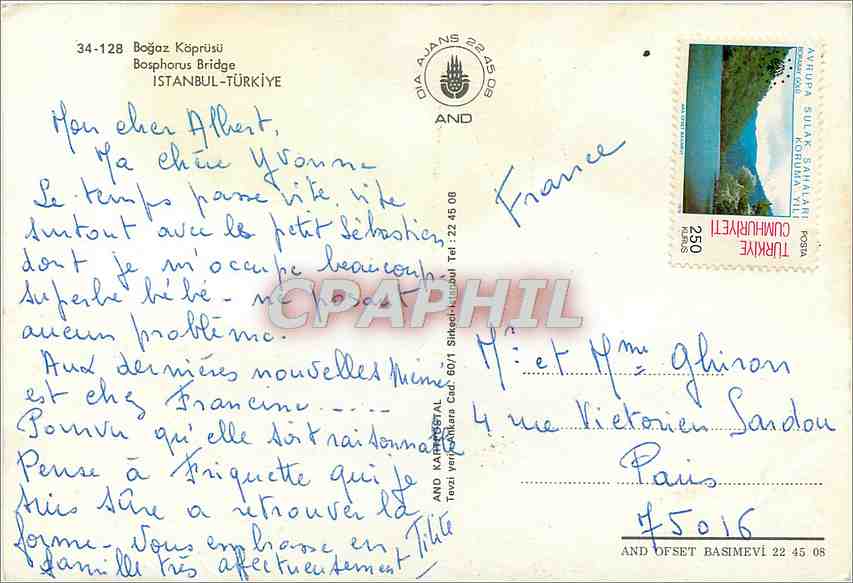 34-128 Boğaz Köprüsü
Bosphorus Bridge
ISTANBUL-TÜRKİYE
Mon cher Albert,
Ma chère Yvonne
Le temps passe vite, vite
surtout avec le petit Sébastien
dont je m'occupe beaucoup.
superbe bébé - ne posant
aucun problème.
Aux dernières nouvelles Mémé
est chez Francine - - - -
Pourvu qu'elle soit raisonnable
Pense à Friquette qui je
suis sûre a retrouver la
forme - Vous embrasse en
famille très affectueusement
Titite
DIA AJANS 22 45 08
AND
AND KARTPOSTAL
Tevzi yeri: Ankara Cad. 60/1 Sirkeci-İstanbul Tel: 22 45 08
CPAPHIL
France
AVRUPA SULAK SAHALARI
KORUMA YILI
POSTA
TÜRKİYE
CUMHURİYETİ
250
KURUŞ
Mr. et Mme Ghiron
4 rue Victorien Sardou
Paris
75016
AND OFSET BASIMEVİ 22 45 08